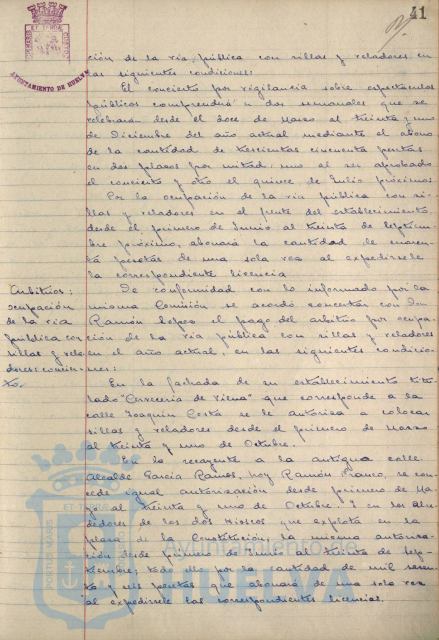 41
AYUNTAMIENTO DE HUELVA
ción de la vía pública con sillas y veladores en
las siguientes condiciones:
El concierto por vigilancia sobre espectáculos
públicos comprenderá dos semanales que se
celebrarán desde el doce de Marzo al treinta y uno
de Diciembre del año actual mediante el abono
de la cantidad de trescientas cincuenta pesetas
en dos plazos por mitad: uno al ser aprobado
el concierto y otro el quince de Julio próximos
Por la ocupación de la vía pública con si-
llas y veladores en el frente del establecimiento,
desde el primero de Junio al treinta de septiem-
bre próximo, abonará la cantidad de cuaren-
ta pesetas de una sola vez al expedirsele
la correspondiente licencia
Arbitrios:
ocupación
de la vía
pública con
sillas y vela-
dores: concier-
to.
De conformidad con lo informado por la
misma Comisión se acordó concertar con Don
Ramón López el pago del arbitrio por ocupa-
ción de la vía pública con sillas y veladores
en el año actual, en las siguientes condicio-
nes:
En la fachada de su establecimiento titu-
lado "Cervecería de Viena" que corresponde a la
calle Joaquín Costa se le autoriza a colocar
sillas y veladores desde el primero de Marzo
al treinta y uno de Octubre.
En la recayente a la antigua calle
Alcalde García Ramos, hoy Ramón Franco, se con-
cede igual autorización desde primero de Ma-
yo al treinta y uno de Octubre. Y en los alre-
dedores de los dos kioscos que explota en la
plaza de la Constitución, la misma autoriza-
ción desde primero de Junio al treinta de Sep-
tiembre; todo ello por la cantidad de mil
pesetas que abonará de una sola vez
al expedirsele las correspondientes licencias.
PORTUS MARIS
ET TERRAE
Ayuntamiento de
HUELVA